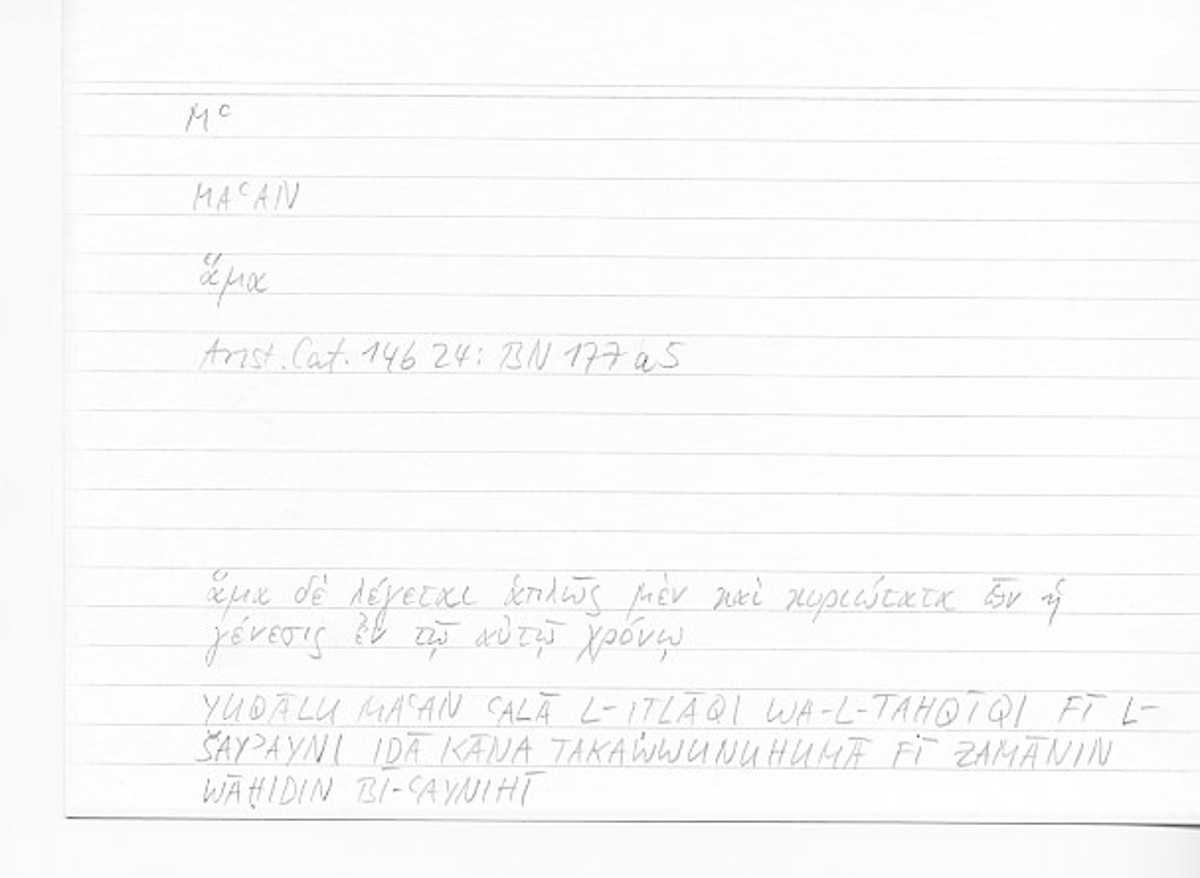 Mᶜ
MAᶜAN
ἅμα
Arist. Cat. 14b 24: BN 177 a5
ἅμα δὲ λέγεται ἁπλῶς μὲν καὶ κυριώτατα ὧν ἡ
γένεσις ἐν τῷ αὐτῷ χρόνῳ
YUQĀLU MAᶜAN ᶜALĀ L-ITLĀQI WA-L-TAHQĪQI FĪ L-
ŠAYʾAYNI IDĀ KĀNA TAKAWWUNUHUMĀ FĪ ZAMĀNIN
WĀḤIDIN BI-ᶜAYNIHĪ